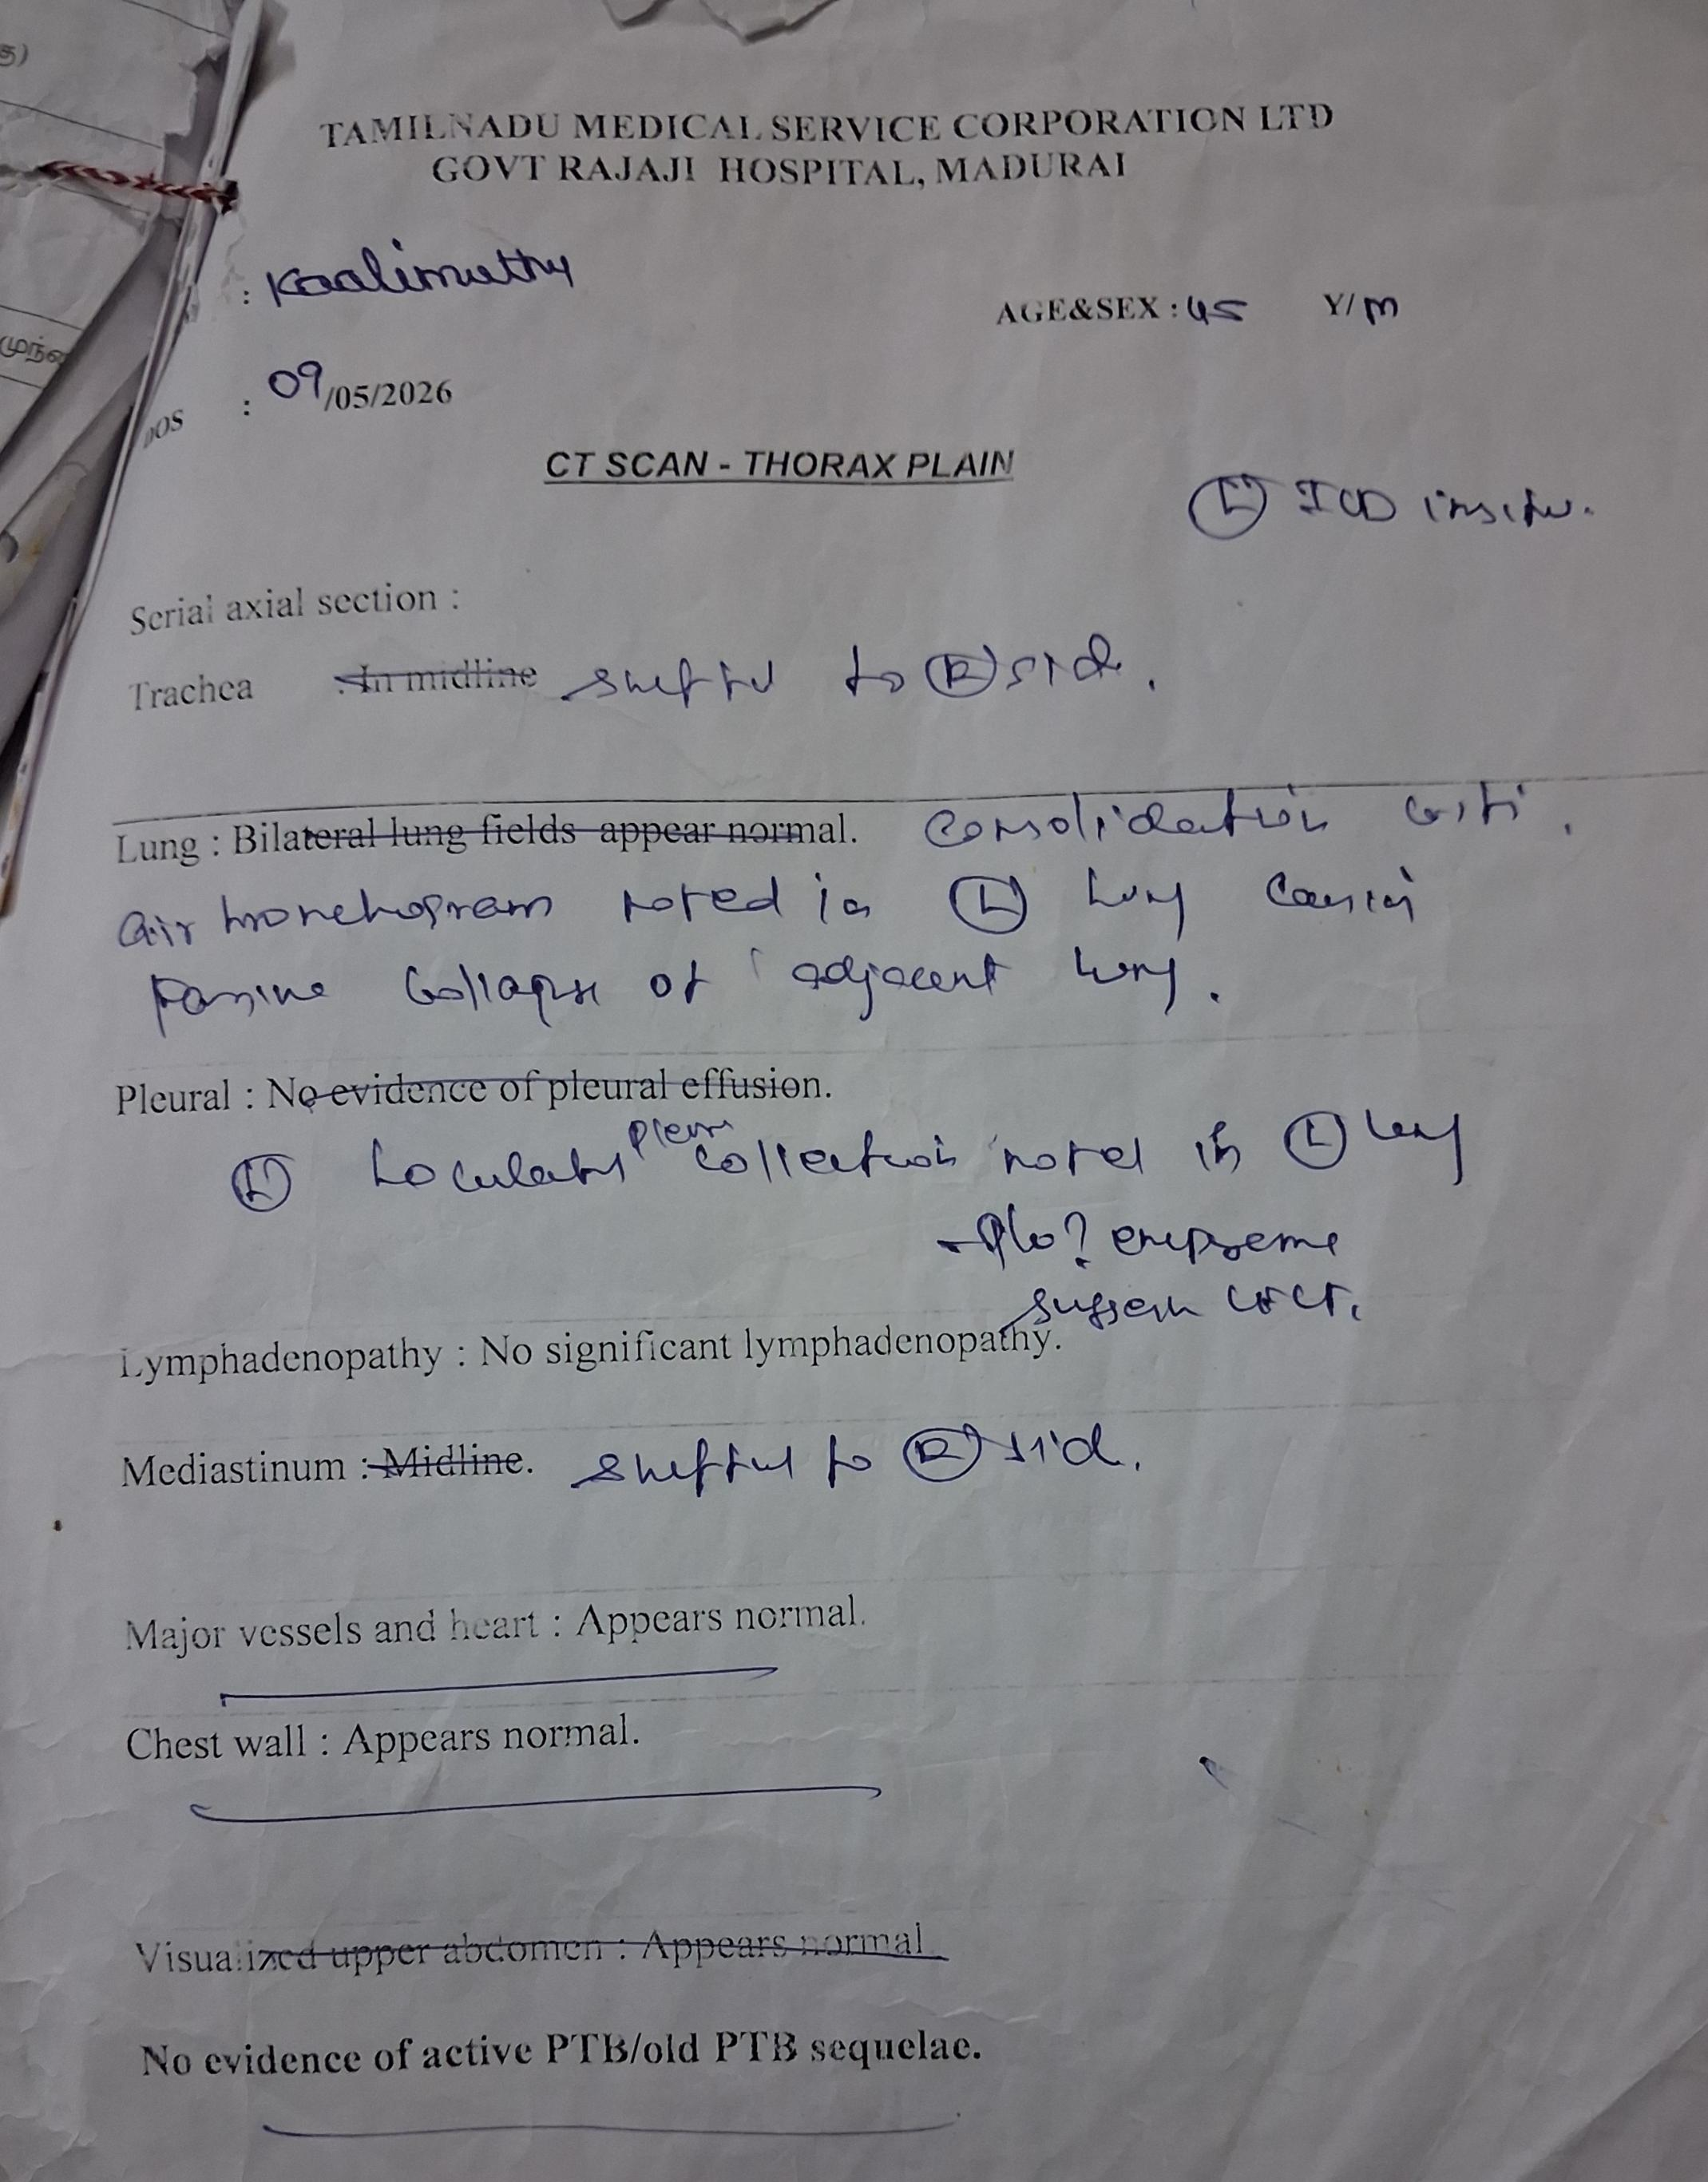 TAMILNADU MEDICAL SERVICE CORPORATION LTD
GOVT RAJAJI HOSPITAL, MADURAI
: Kaalimuthu
AGE&SEX : 45 Y/M
DOS : 09/05/2026
CT SCAN - THORAX PLAIN
(L) ICD insitu.
Serial axial section :
Trachea : In midline shifted to (R) side.
Lung : Bilateral lung fields appear normal. Consolidation with
air bronchogram noted in (L) lung causing
passive collapse of adjacent lung.
Pleural : No evidence of pleural effusion.
(L) Loculated pleural collection noted in (L) lung
- P/o? empyema
suggest CECT.
Lymphadenopathy : No significant lymphadenopathy.
Mediastinum : Midline. shifted to (R) side.
Major vessels and heart : Appears normal.
Chest wall : Appears normal.
Visualized upper abdomen : Appears normal
No evidence of active PTB/old PTB sequelae.